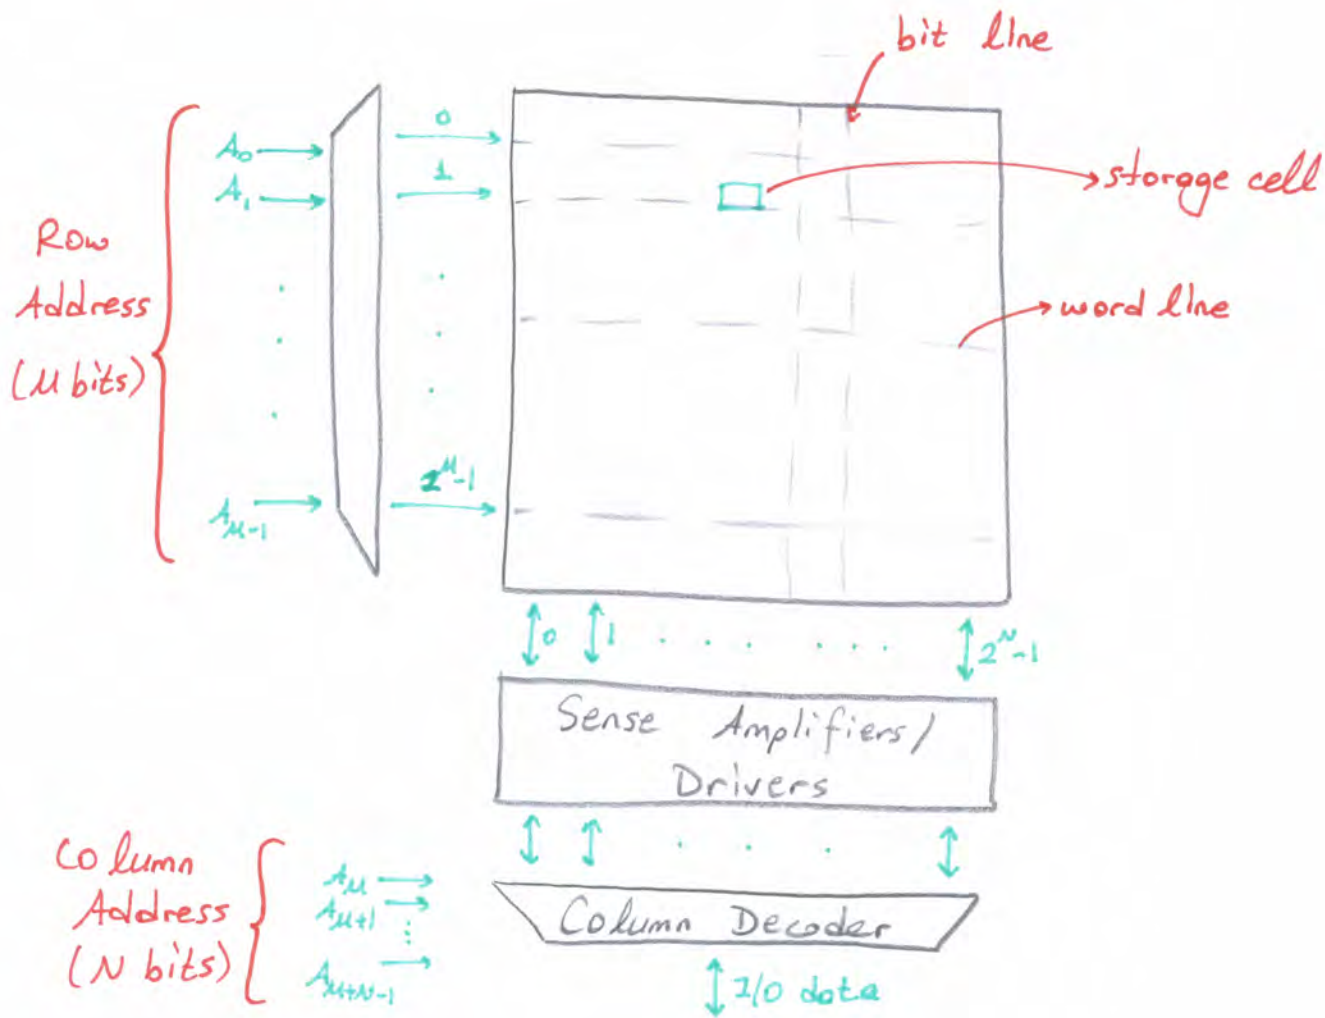 bit line
storage cell
word line
Row
Address
(M bits)
A₀
A₁
A_M-1
0
1
2^M-1
0
1
2^N-1
Sense Amplifiers/
Drivers
Column
Address
(N bits)
A_M
A_M+1
A_M+N-1
Column Decoder
I/O data